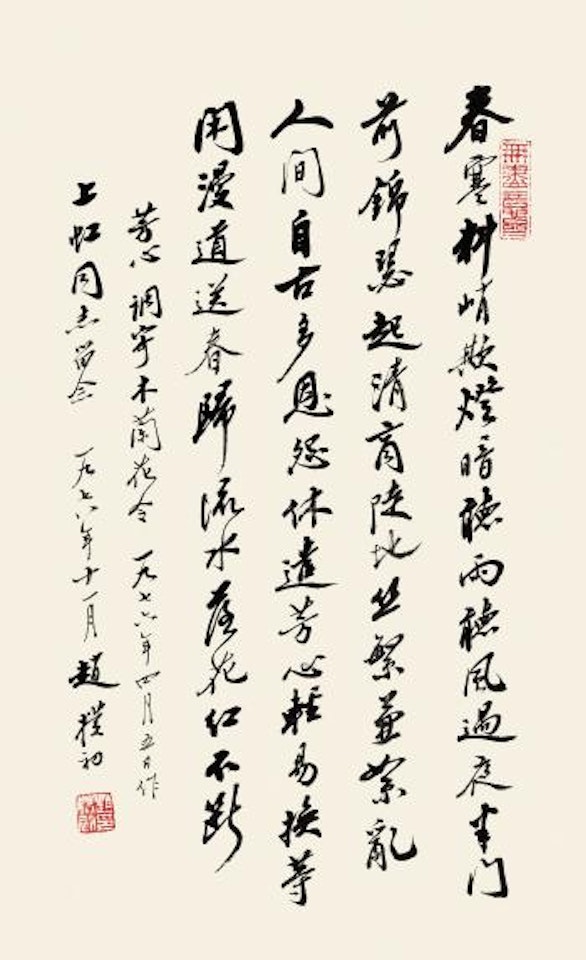 無盡意齋
春寒料峭欺燈暗聽雨聽風過夜半门
前錦瑟起清商陡地丝繁兼絮亂
人间自古多恩怨休遣芳心輕易换等
闲漫道送春歸流水落花红不断
芳心 调寄木蘭花令 一九七六年四月五日作
上虹同志留念 一九七八年十一月 趙樸初